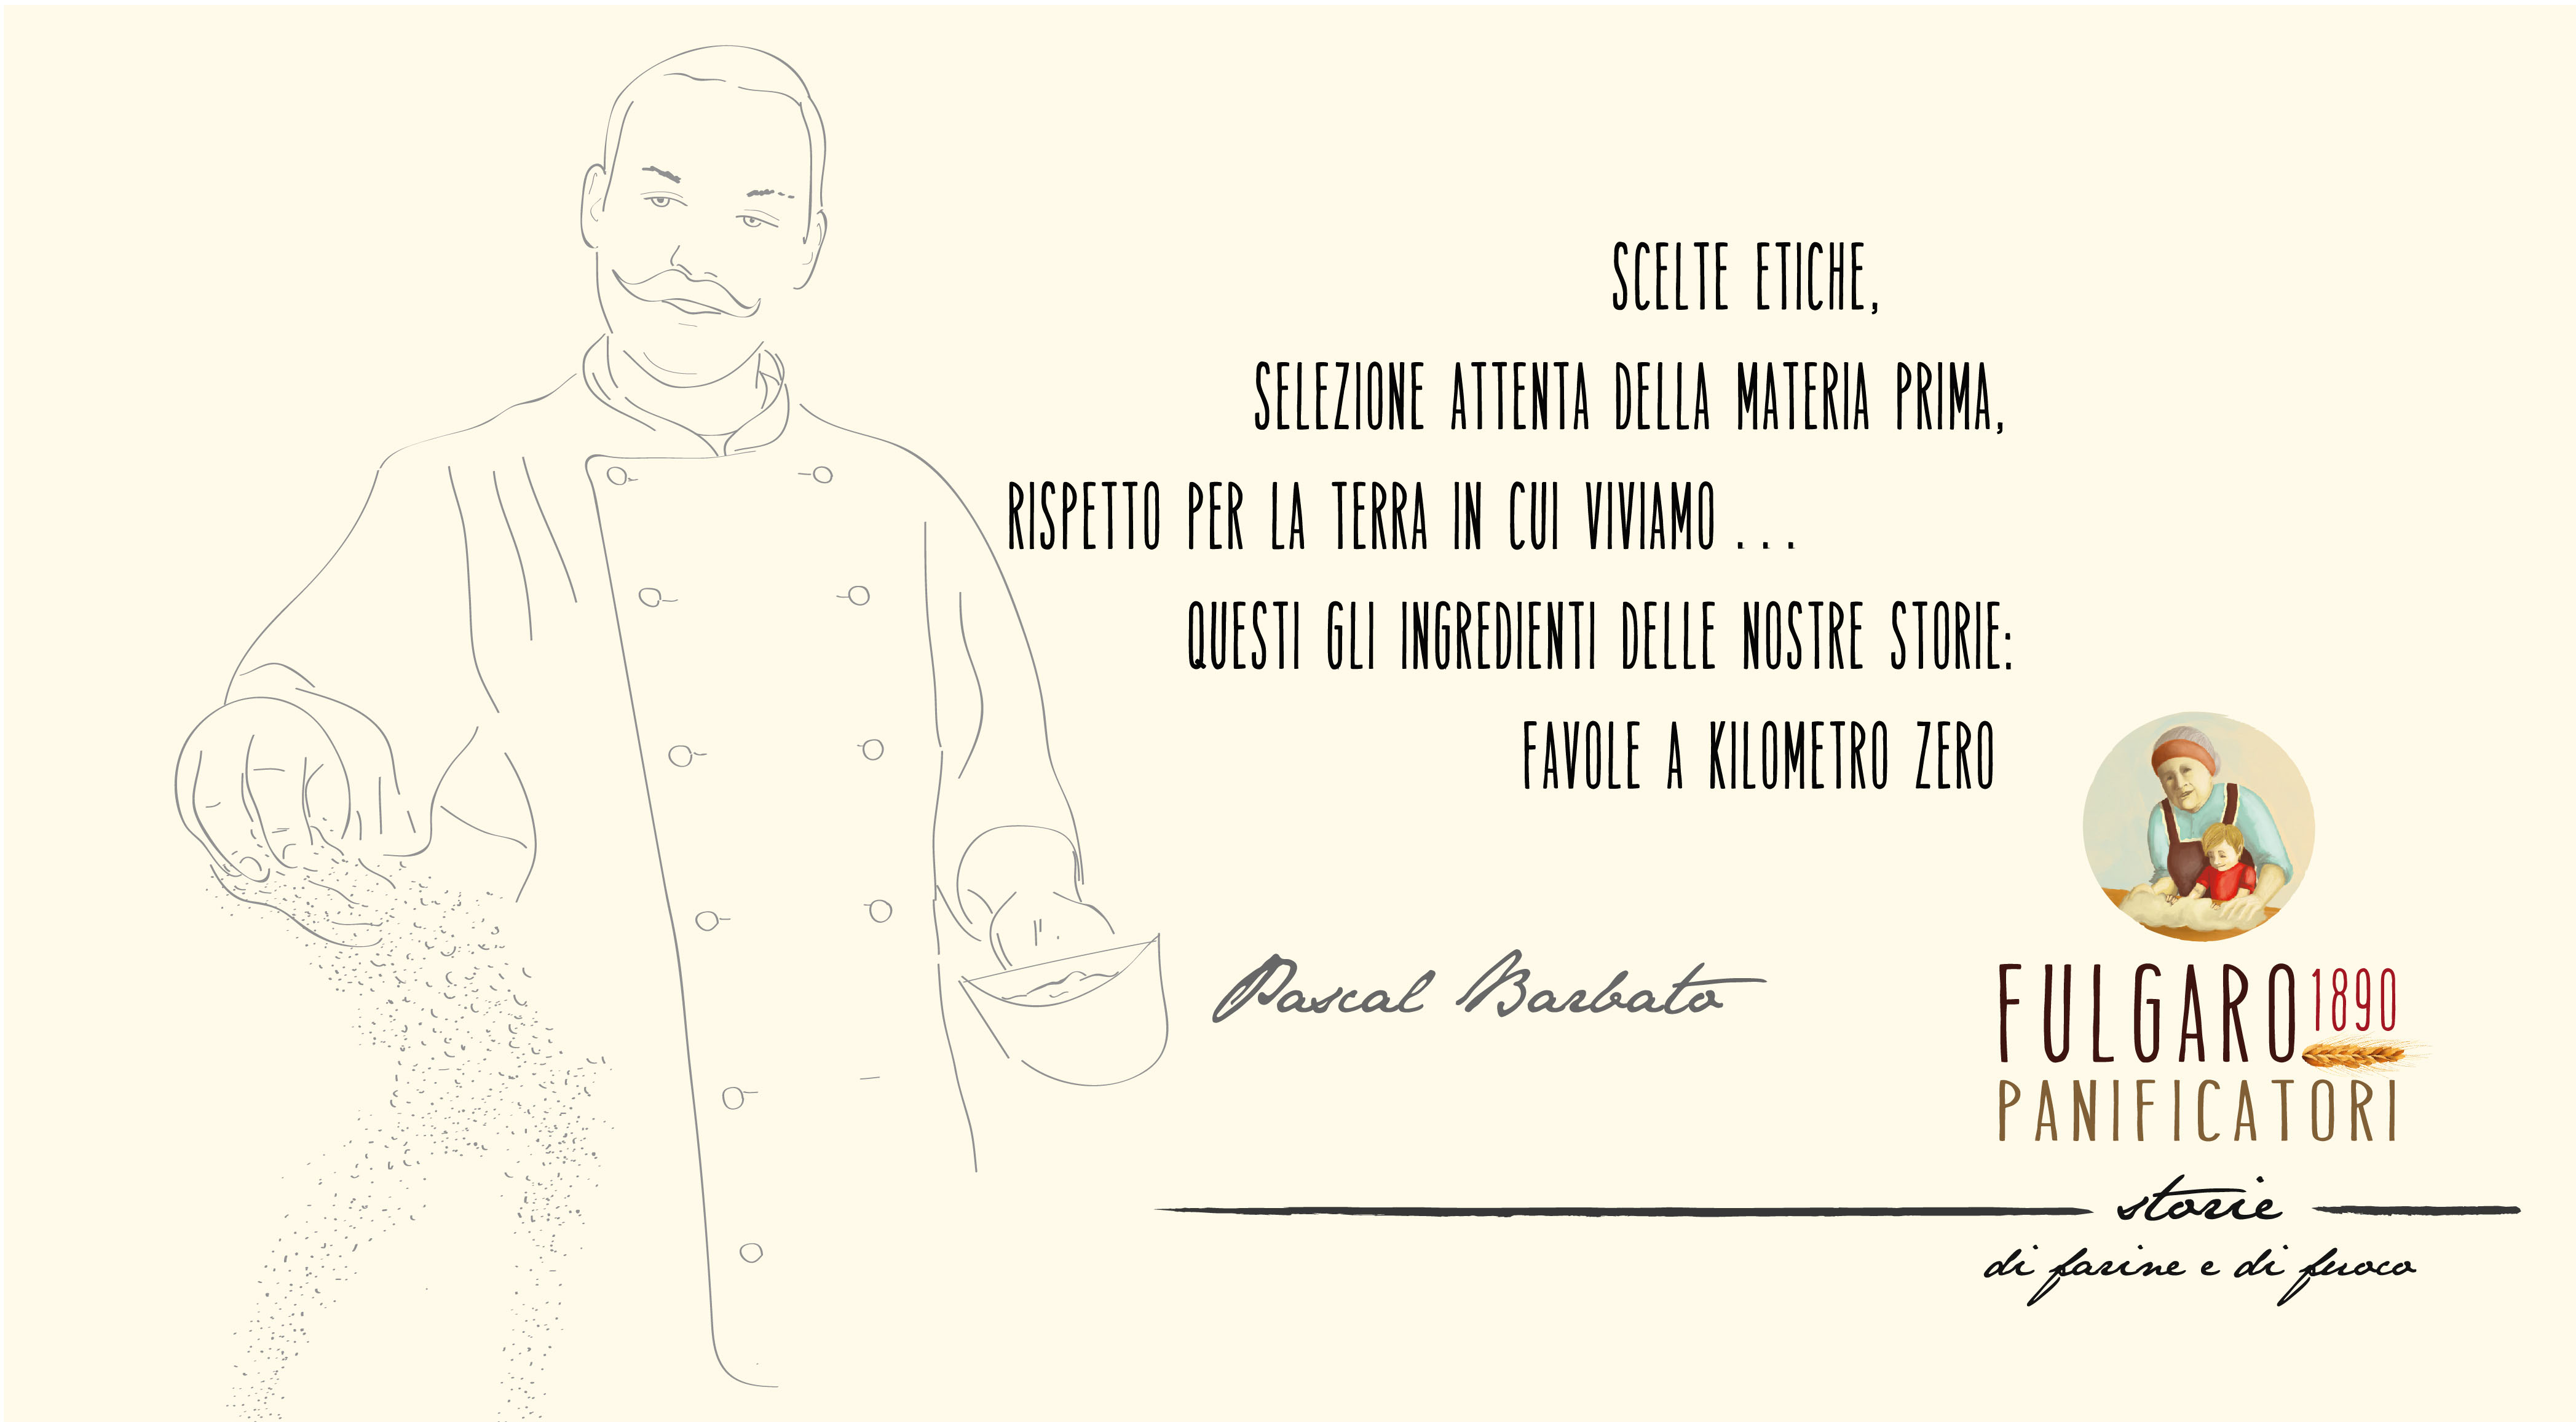 SCELTE ETICHE,
SELEZIONE ATTENTA DELLA MATERIA PRIMA,
RISPETTO PER LA TERRA IN CUI VIVIAMO ...
QUESTI GLI INGREDIENTI DELLE NOSTRE STORIE:
FAVOLE A KILOMETRO ZERO
Pascal Barbato
FULGARO 1890
PANIFICATORI
storie
di farine e di fuoco